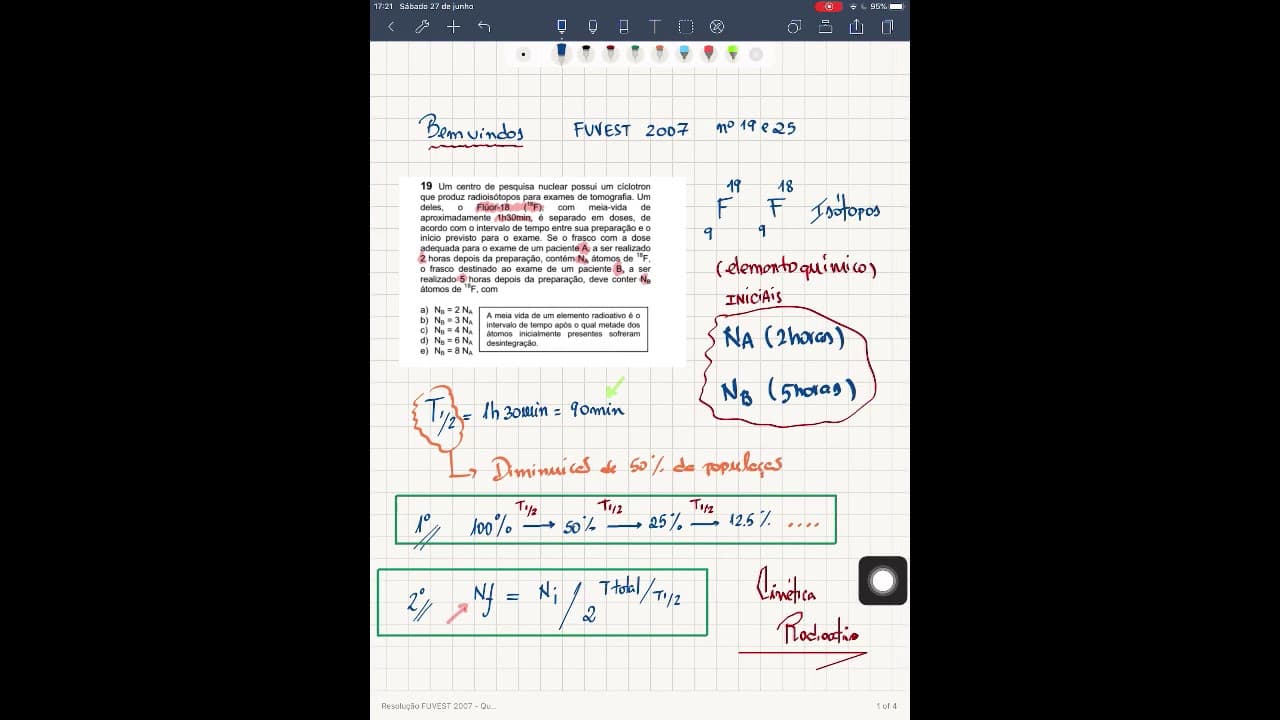 17:21 Sábado 27 de junho
95%
Bem vindos FUVEST 2007 nº 19 e 25
19 Um centro de pesquisa nuclear possui um cíclotron
que produz radioisótopos para exames de tomografia. Um
deles, o Flúor-18 (¹⁸F), com meia-vida de
aproximadamente 1h30min, é separado em doses, de
acordo com o intervalo de tempo entre sua preparação e o
início previsto para o exame. Se o frasco com a dose
adequada para o exame de um paciente A, a ser realizado
2 horas depois da preparação, contém NA átomos de ¹⁸F,
o frasco destinado ao exame de um paciente B, a ser
realizado 5 horas depois da preparação, deve conter NB
átomos de ¹⁸F, com
a) NB = 2 NA
b) NB = 3 NA
c) NB = 4 NA
d) NB = 6 NA
e) NB = 8 NA
A meia vida de um elemento radioativo é o
intervalo de tempo após o qual metade dos
átomos inicialmente presentes sofreram
desintegração.
19 18
F F Isótopos
9 9
(elemento químico)
INICIAIS
NA (2horas)
NB (5horas)
T1/2 = 1h 30min = 90min
↳ Diminuição de 50% da população
T1/2 T1/2 T1/2
1º 100% → 50% → 25% → 12.5% ....
2º Nf = Ni / 2 Ttotal/T1/2
Cinética
Radioativa
Resolução FUVEST 2007 - Qu...
1 of 4